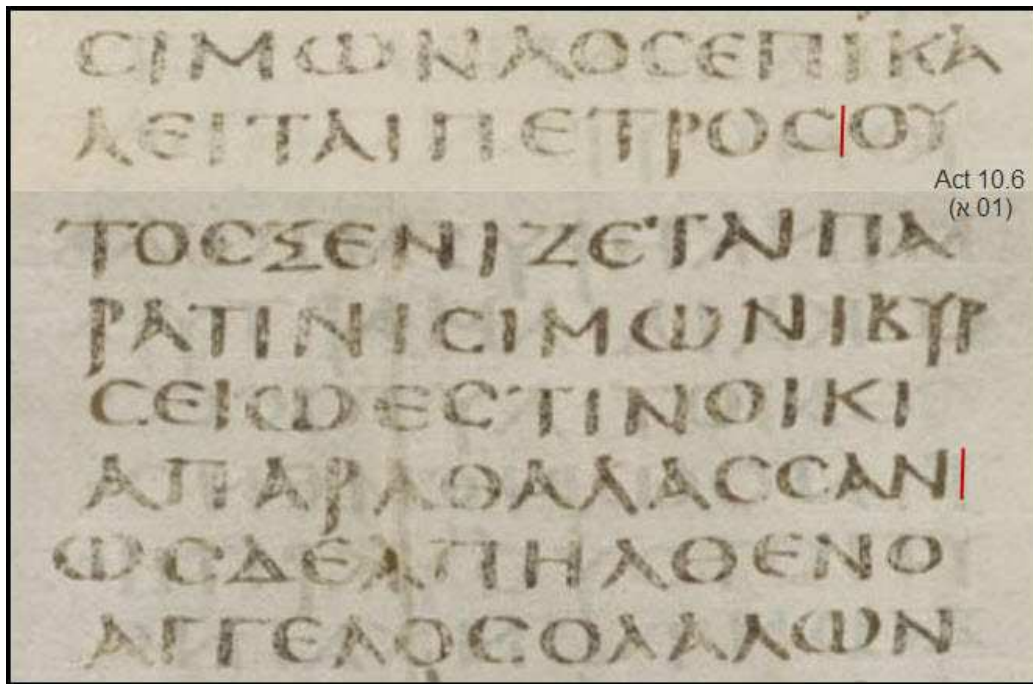 ϹΙΜΩΝΑΟϹΕΠΙΚΑ
ΛΕΙΤΑΙΠΕΤΡΟϹΟΥ
Act 10.6
(א 01)
ΤΟϹΞΕΝΙΖΕΤΑΙΠΑ
ΡΑΤΙΝΙϹΙΜΩΝΙΒΥΡ
ϹΕΙΩΕϹΤΙΝΟΙΚΙ
ΑΠΑΡΑΘΑΛΑϹϹΑΝ
ΩϹΔΕΑΠΗΛΘΕΝΟ
ΑΓΓΕΛΟϹΟΛΑΛΩΝ